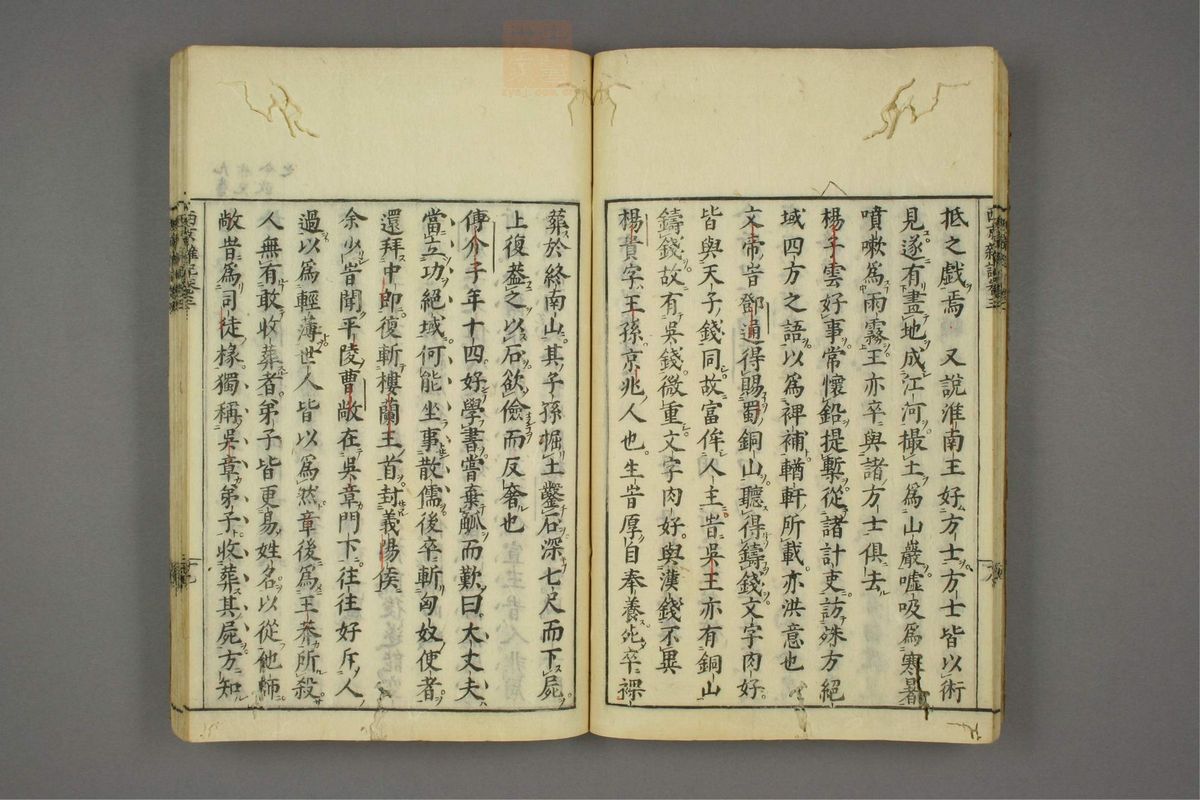 抵之戲焉　又說淮南王好方士方士皆以術
見遂有畫地成江河撮土爲山巖噓吸爲寒暑
噴嗽爲雨霧王亦卒與諸方士俱去
楊子雲好事常懷鉛提槧從諸計吏訪殊方絕
域四方之語以爲裨補輶軒所載亦洪意也
文帝旹鄧通得賜蜀銅山聽得鑄錢文字肉好
皆與天子錢同故富侔人主旹吳王亦有銅山
鑄錢故有吳錢微重文字肉好與漢錢不異
楊貴字王孫京兆人也生旹厚自奉養死卒裸
葬於終南山其子孫掘土鑿石深七尺而下屍
上復葢之以石欲儉而反奢也
傅介子年十四好學書嘗棄觚而歎曰大丈夫
當立功絕域何能坐事散儒後卒斬匈奴使者
還拜中郎復斬樓蘭王首封義陽侯
余少旹聞平陵曹敞在吳章門下往往好斥人
過以爲輕薄世人皆以爲然章後爲王莽所殺
人無有敢收葬者弟子皆更易姓名以從他師
敞旹爲司徒椽獨稱吳章弟子收葬其屍方知